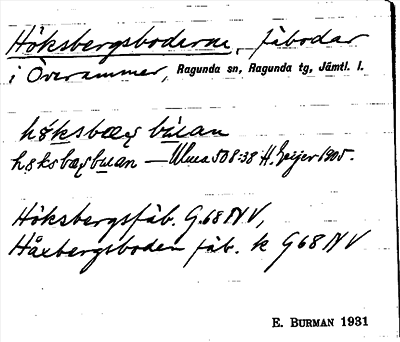 Höksbergsboderne, fäbodar
i Överammer, Ragunda sn, Ragunda tg, Jämtl. l.
høksbæɣ búan
høksbæɣbuan — Ulma 508:38 H. Geijer 1905.
Höksbergsfäb. G. 68 NV,
Håxbergsboden fäb. k G 68 NV
E. BURMAN 1931